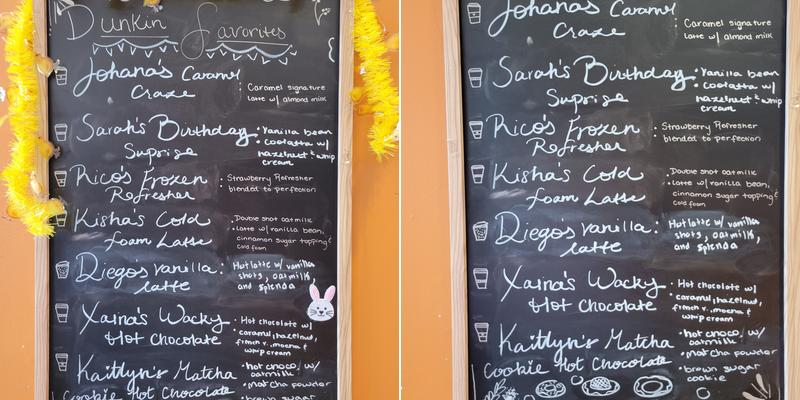 Dunkin Favorites
Johana's Caramel
Craze
: Caramel signature
latte w/ almond milk
Sarah's Birthday
Suprise
• Vanilla bean
• coolatta w/
hazelnut & whip
cream
Rico's Frozen
Refresher
: Strawberry Refresher
blended to perfection
Kisha's Cold
foam Latte
• Double shot oatmilk
• latte w/ vanilla bean,
cinnamon sugar topping &
cold foam
Diego's vanilla :
latte
Hot latte w/ vanilla
shots, oatmilk,
and splenda
Xaina's Wacky
Hot Chocolate
• Hot chocolate w/
caramel, hazelnut,
french v., mocha &
whip cream
Kaitlyn's Matcha
Cookie Hot Chocolate
• hot choco. w/
oatmilk
• matcha powder
• brown sugar
Johana's Caramel
Craze
: Caramel signature
latte w/ almond milk
Sarah's Birthday
Suprise
• Vanilla bean
• coolatta w/
hazelnut & whip
cream
Rico's Frozen
Refresher
: Strawberry Refresher
blended to perfection
Kisha's Cold
foam Latte
Double shot oatmilk
• latte w/ vanilla bean,
cinnamon sugar topping &
cold foam
Diego's vanilla :
latte
Hot latte w/ vanilla
shots, oatmilk,
and splenda
Xaina's Wacky
Hot Chocolate
• Hot chocolate w/
caramel, hazelnut,
french v., mocha &
whip cream
Kaitlyn's Matcha
Cookie Hot Chocolate
• hot choco. w/
oatmilk
• matcha powder
• brown sugar
cookie